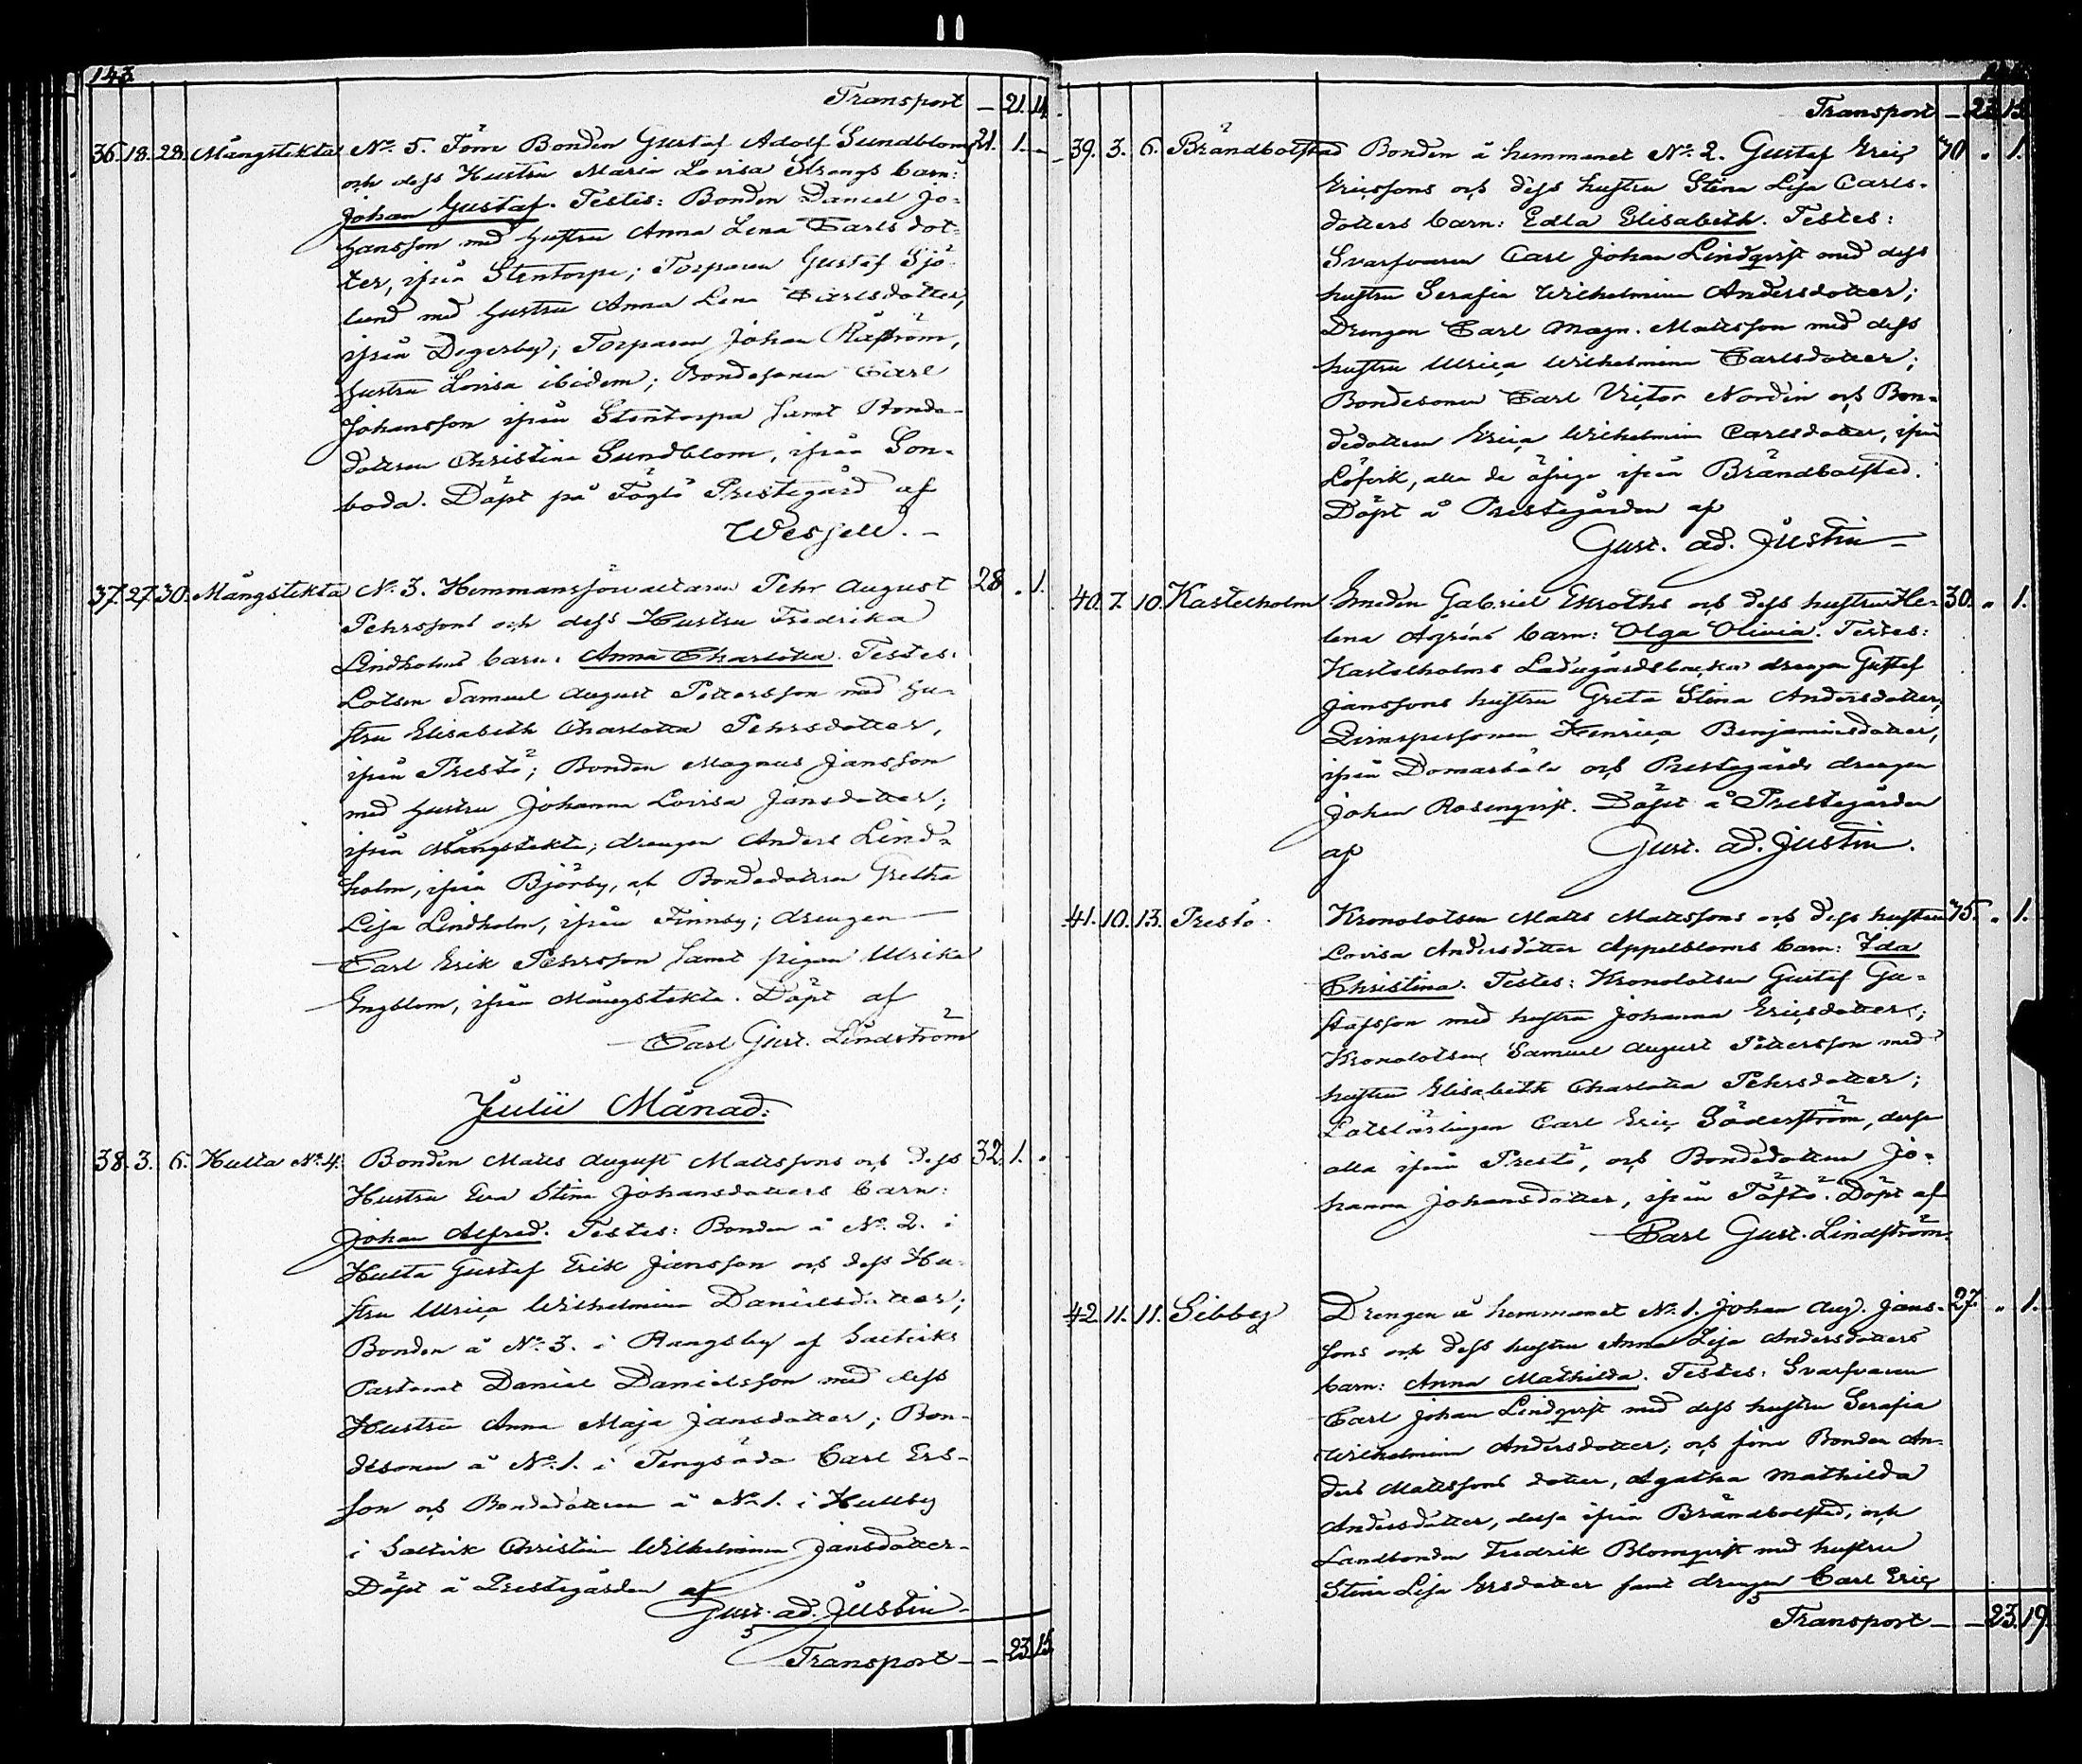 143
Transport — 21. 14.
36. 18. 28. Mångstekta No. 5. Förre Bonden Gustaf Adolf Sundbloms 21. 1. -
och dess Hustru Maria Lovisa Strengs barn:
Johan Gustaf. Testes: Bonden Daniel Jo-
hansson med hustru Anna Lena Carlsdot-
ter, ifrån Stentorpa; Torparen Gustaf Sjö-
lund med hustru Anna Lena Carlsdotter,
ifrån Degerby; Torparen Johan
hustru Lovisa ibidem; Bondesonen Carl
Johansson ifrån Stentorpa samt Bonde-
dottren Christina Sundblom, ifrån Son-
boda. Döpt på Föglö Prestegård af
37. 27. 30. Mångstekta No. 3. Hemmansförvaltaren Pehr August 28 . 1.
Pehrssons och dess Hustru Fredrika
Lindholms barn: Anna Charlotta. Testes:
Lotsen Samuel August Pettersson med hu-
stru Elisabeth Charlotta Pehrsdotter,
ifrån Prestö; Bonden Magnus Jansson
med hustru Johanna Lovisa Jansdotter;
ifrån Mångstekta; drengen Anders Lind-
holm, ifrån Björby, och Bondedottren Gretha
Lisa Lindholm, ifrån Finnby; drengen
Carl Erik Pehrsson samt pigan Ulrika
Engblom, ifrån Mångstekta. Döpt af
Carl Gust. Lindström
Julii Månad:
38. 3. 6. Hulta No. 4. Bonden Matts August Mattssons och dess 32. 1. .
Hustru Eva Stina Johansdotters barn:
Johan Alfred. Testes: Bonden å No. 2. i
Hulta Gustaf Erik Jansson och dess Hu-
stru Ulrica Wilhelmina Danielsdotter;
Bonden å No. 3. i Rangsby af Saltviks
Pastorat Daniel Danielsson med dess
Hustru Anna Maja Jansdotter; Bon-
desonen å No. 1. i Tengsöda Carl Ers-
son och Bondedottren å No. 1. i Hullby
i Saltvik Christina Wilhelmina Jansdotter.
Döpt å Prestegården af
Gust. Ad. Justin
Transport — — 23. 15
Transport — 23. 15.
39. 3. 6. Brändbolstad Bonden å hemmanet No. 2. Gustaf Eric 40 . 1.
Ericssons och dess hustru Stina Lisa Carls-
dotters barn: Edla Elisabeth. Testes:
Svarfvaren Carl Johan Lindqvist med dess
hustru Serafia Wilhelmina Andersdotter;
Drengen Carl Magn. Mattsson med dess
hustru Ulrica Wilhelmina Carlsdotter;
Bondesonen Carl Victor Nordin och Bon-
dedottren Erica Wilhelmina Carlsdotter, ifrån
Löfvik, alla de öfrige ifrån Brändbolsted.
Döpt å Prestegården af
Gust. Ad. Justin
40. 7. 10. Kastelholm Smeden Gabriel Ekroths och dess hustru He- 30. . 1.
lena barn: Olga Olivia. Testes:
Kastelholms Ladugårdsbacka drengen Gustaf
Janssons hustru Greta Stina Andersdotter,
Qvinspersonen Henrica Benjaminsdotter,
ifrån Domarböle och Prestegårds drengen
Johan Rosenqvist. Döpt å Prestegården
af Gust. Ad. Justin.
41. 10. 13. Prestö. Kronolotsen Matts Mattssons och dess hustru 45. . 1.
Lovisa Andersdotter Appelbloms barn: Ida
Christina. Testes: Kronolotsen Gustaf Gu-
stafsson med hustru Johanna Ericsdotter;
Kronolotsen Samuel August Pettersson med
hustru Elisabeth Charlotta Pehrsdotter;
Lotslärlingen Carl Eric Söderström, desse
alla ifrån Prestö, och Bondedottren Jo-
hanna Johansdotter, ifrån Töftö. Döpt af
Carl Gust. Lindström.
42. 11. 11. Sibby Drengen å hemmanet No. 1. Johan Aug. Jans- 27. . 1.
sons och dess hustru Anna Lisa Andersdotters
barn: Anna Mathilda. Testes: Svarfvaren
Carl Johan Lindqvist med dess hustru Serafia
Wilhelmina Andersdotter; och förre Bonden An-
ders Mattssons dotter, Agatha Mathilda
Andersdotter, desse ifrån Brändbolsted, och
Landbonden Fredrik Blomqvist med hustru
Stina Lisa Ersdotter samt drengen Carl Eric
Transport — — 23. 19.